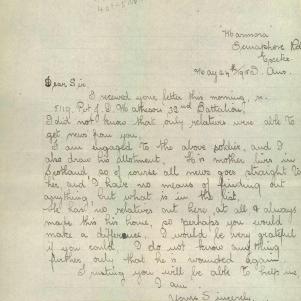 "Marmora"
Semaphore Rd
Exeter
May 24th
Dear Sir,
I received your letter this morning, re
5119. Pvt J. E. Matheson 32nd Battalion,
I did not know that only relatives were able to
get news from you.
I am engaged to the above soldier, and I
also draw his allotment. His mother lives in
Scotland, so of course all news goes straight to
her and I have no means of finding out
anything, but what is in the list.
He has no relatives out here, at all & always
made this his home, so perhaps you would
make a difference. I would be very grateful
if you could. I do not know anything
further only that he is wounded again
Trusting you will be able to help me
I am
Yours Sincerely